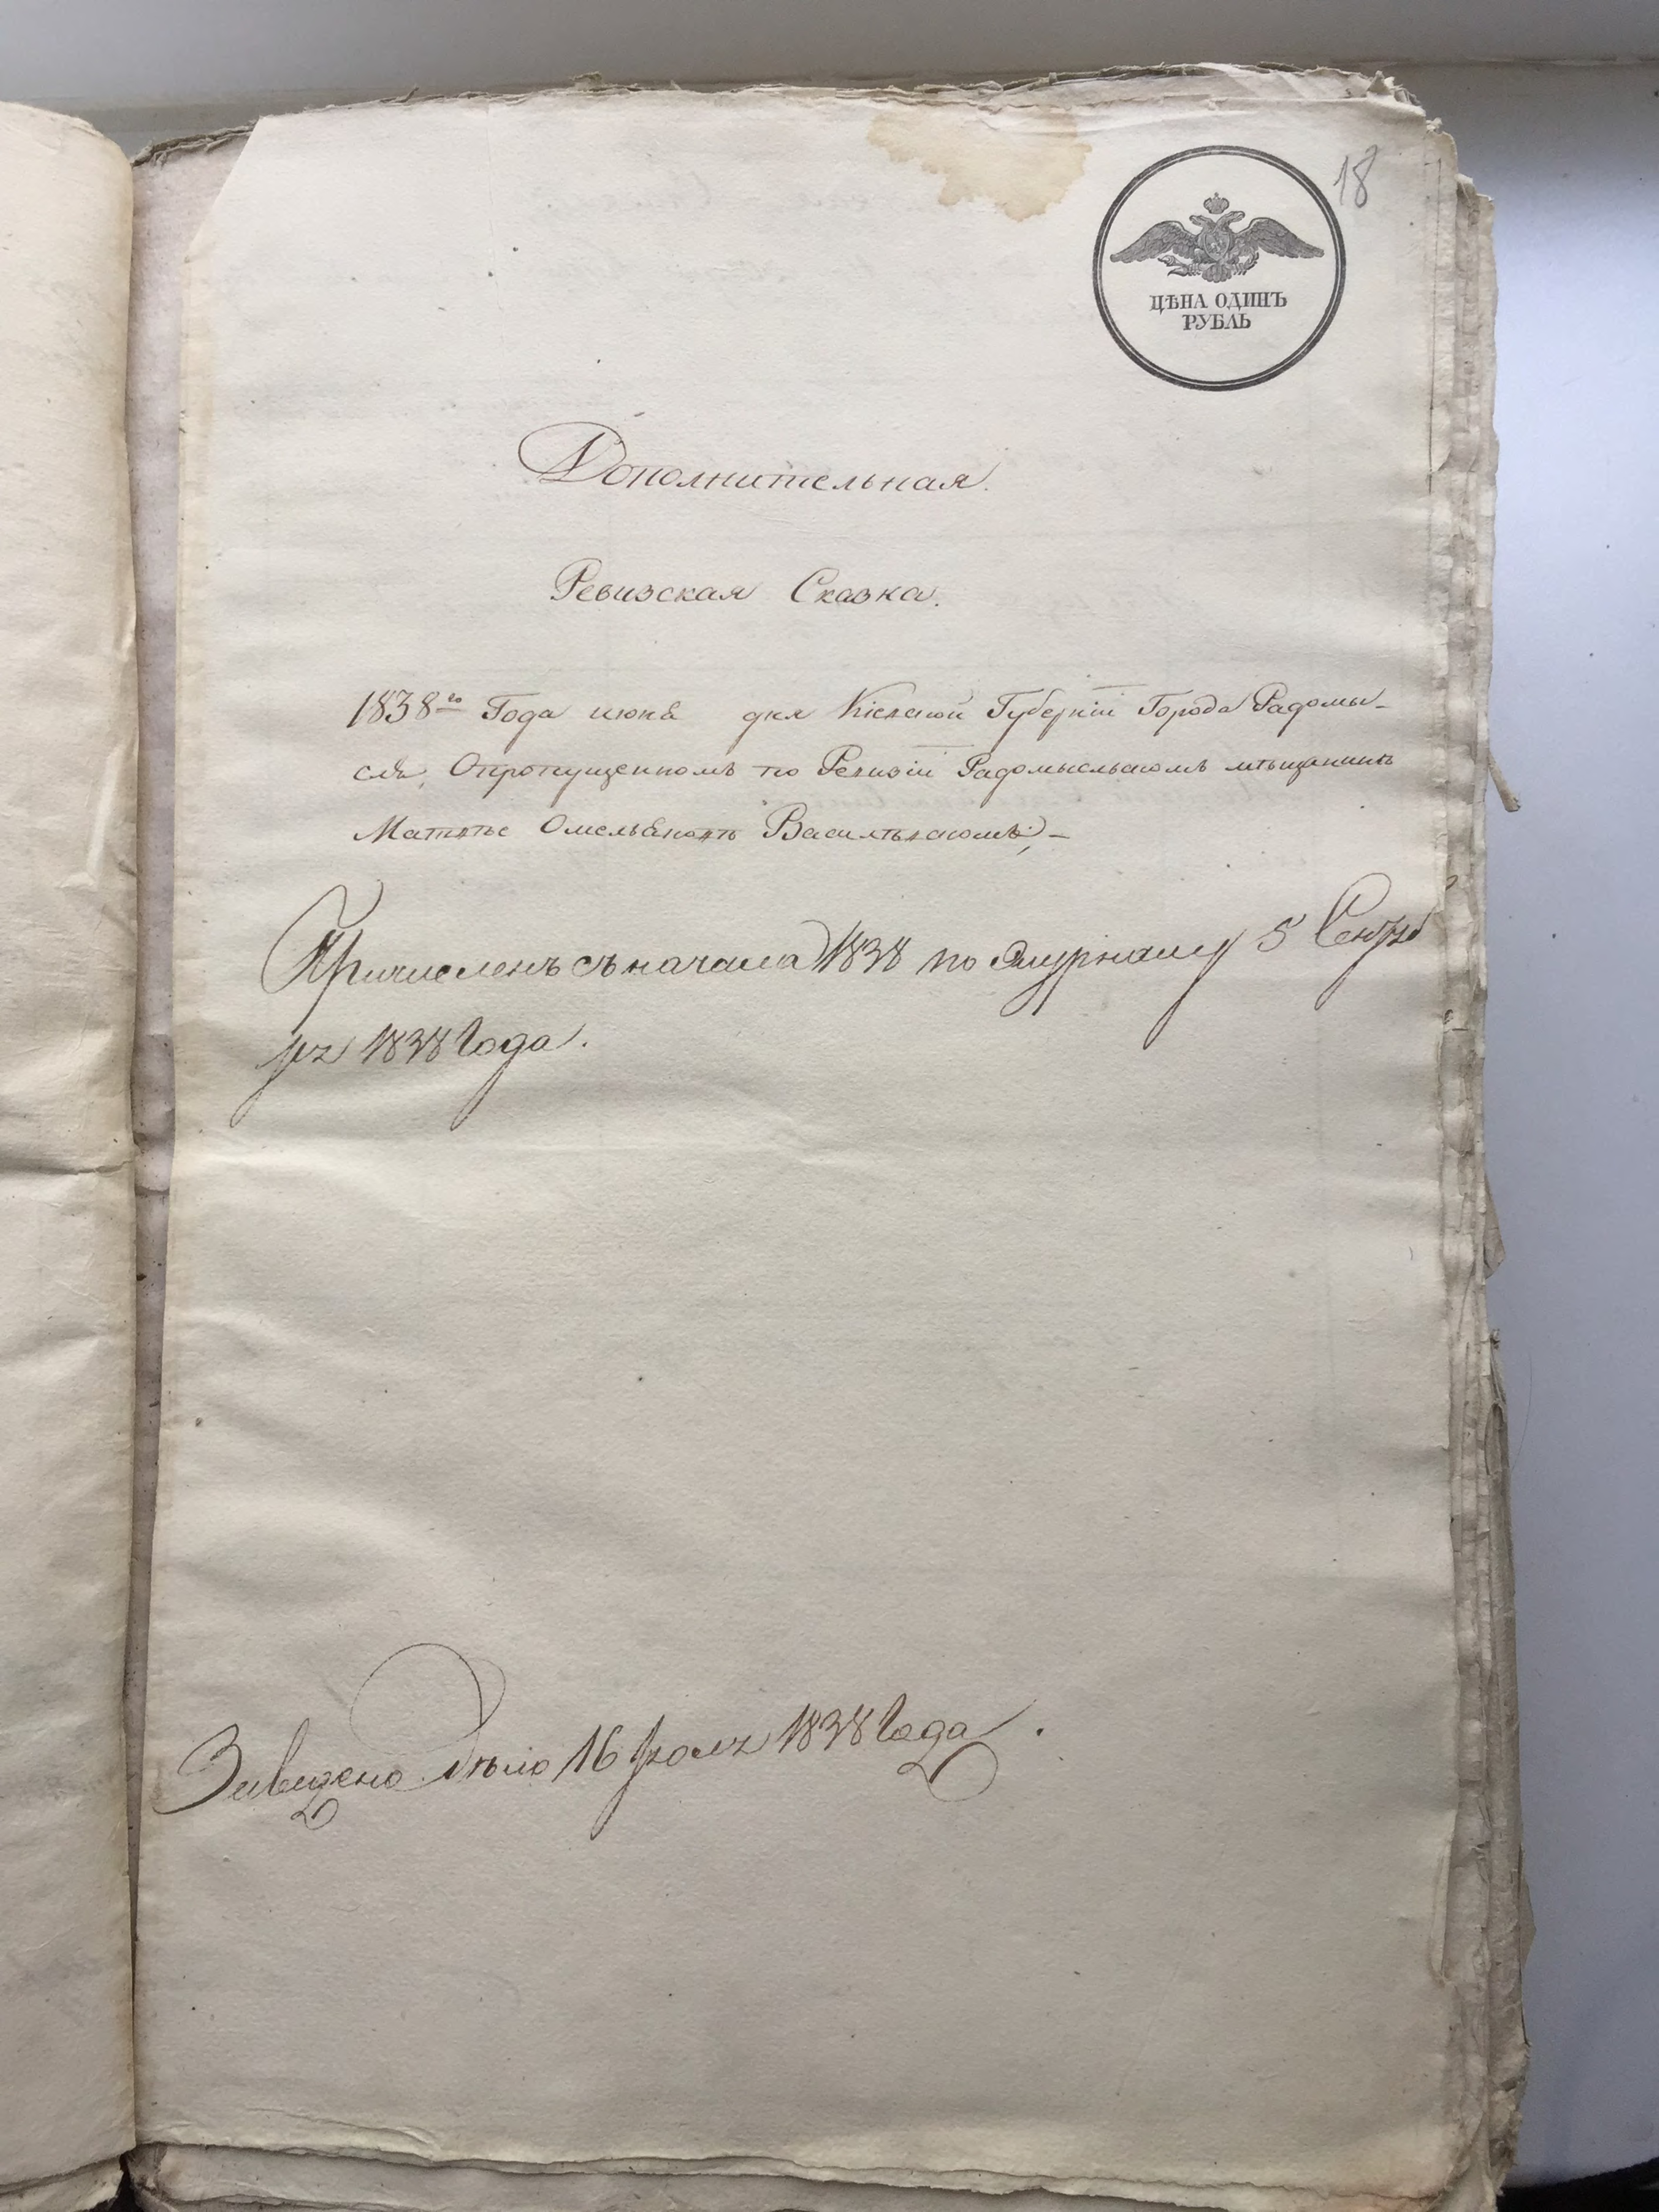 18
ЦѢНА ОДИНЪ
РУБЛЬ
Дополнительная.
Ревизская Сказка.
1838го Года июня дня Кіевской Губерніи Города Радомы-
сля, Опропущенномъ по Ревизіи Радомысльскомъ мѣщанинѣ
Матвѣе Омельяновѣ Васильевскомъ,-
Причисленъ съ начала 1838 по Журналу 5 Сентяб
ря 1838 Года.
Заведено Дѣло 16 1838 Года.